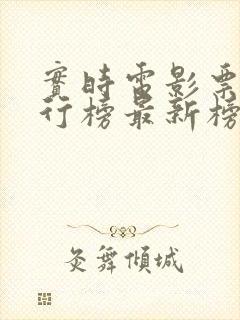 實時電影票
行榜最新榜
炙舞傾城